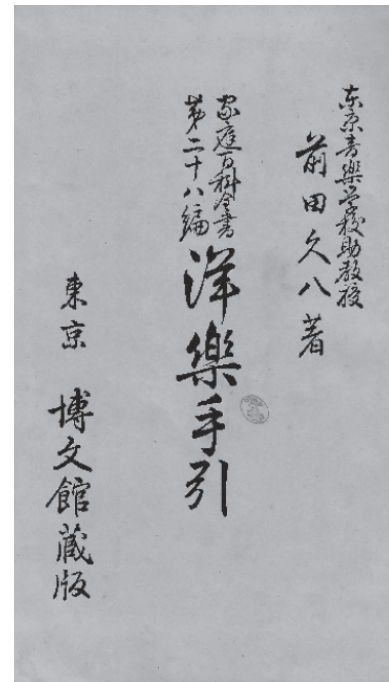 東京音樂学校助教授
前田久八著
家庭百科全書
第二十八編
洋樂手引
東京 博文館蔵版